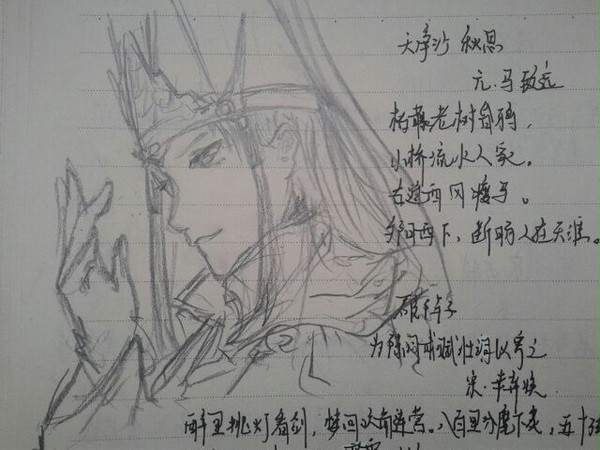 天净沙 秋思
元·马致远
枯藤老树昏鸦，
小桥流水人家。
古道西风瘦马。
夕阳西下，断肠人在天涯。
破阵子
为陈同甫赋壮词以寄之
宋·辛弃疾
醉里挑灯看剑，梦回吹角连营。八百里分麾下炙，五十弦